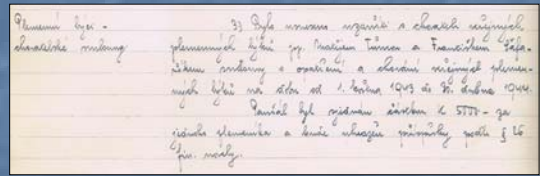 Plemenní býci -
chovatelské smlouvy
3) Bylo usneseno uzavříti s chovateli veřejných
plemenných býků pp. Matějem Tůmou a Františkem Šafa-
říkem smlouvy o opatření a chování veřejných plemen-
ných býků na dobu od 1. května 1943 do 30. dubna 1944.
Paušál byl sjednán částkou K 5000.- za
jednoho plemeníka a bude uhrazen příspěvky podle § 26
fin. novely.